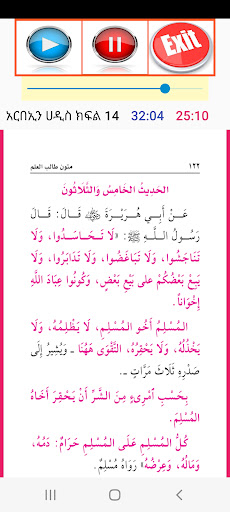 Exit
አርበኢን ሀዲስ ክፍል 14 32:04 25:10
متون طالب العلم ١٢٢
الحَدِيثُ الخَامِسُ وَالثَّلَاثُونَ
عَنْ أَبِي هُرَيْرَةَ ﷺ قَالَ: قَالَ
رَسُولُ اللَّهِ ﷺ: «لَا تَحَاسَدُوا، وَلَا
تَنَاجَشُوا، وَلَا تَبَاغَضُوا، وَلَا تَدَابَرُوا، وَلَا
يَبِعْ بَعْضُكُمْ عَلَى بَيْعِ بَعْضٍ، وَكُونُوا عِبَادَ اللَّهِ
إِخْوَاناً.
المُسْلِمُ أَخُو المُسْلِمِ، لَا يَظْلِمُهُ، وَلَا
يَخْذُلُهُ، وَلَا يَحْقِرُهُ، التَّقْوَى هَهُنَا - وَيُشِيرُ إِلَى
صَدْرِهِ ثَلَاثَ مَرَّاتٍ -.
بِحَسْبِ امْرِئٍ مِنَ الشَّرِّ أَنْ يَحْقِرَ أَخَاهُ
المُسْلِمَ.
كُلُّ المُسْلِمِ عَلَى المُسْلِمِ حَرَامٌ: دَمُهُ،
وَمَالُهُ، وَعِرْضُهُ» رَوَاهُ مُسْلِمٌ.